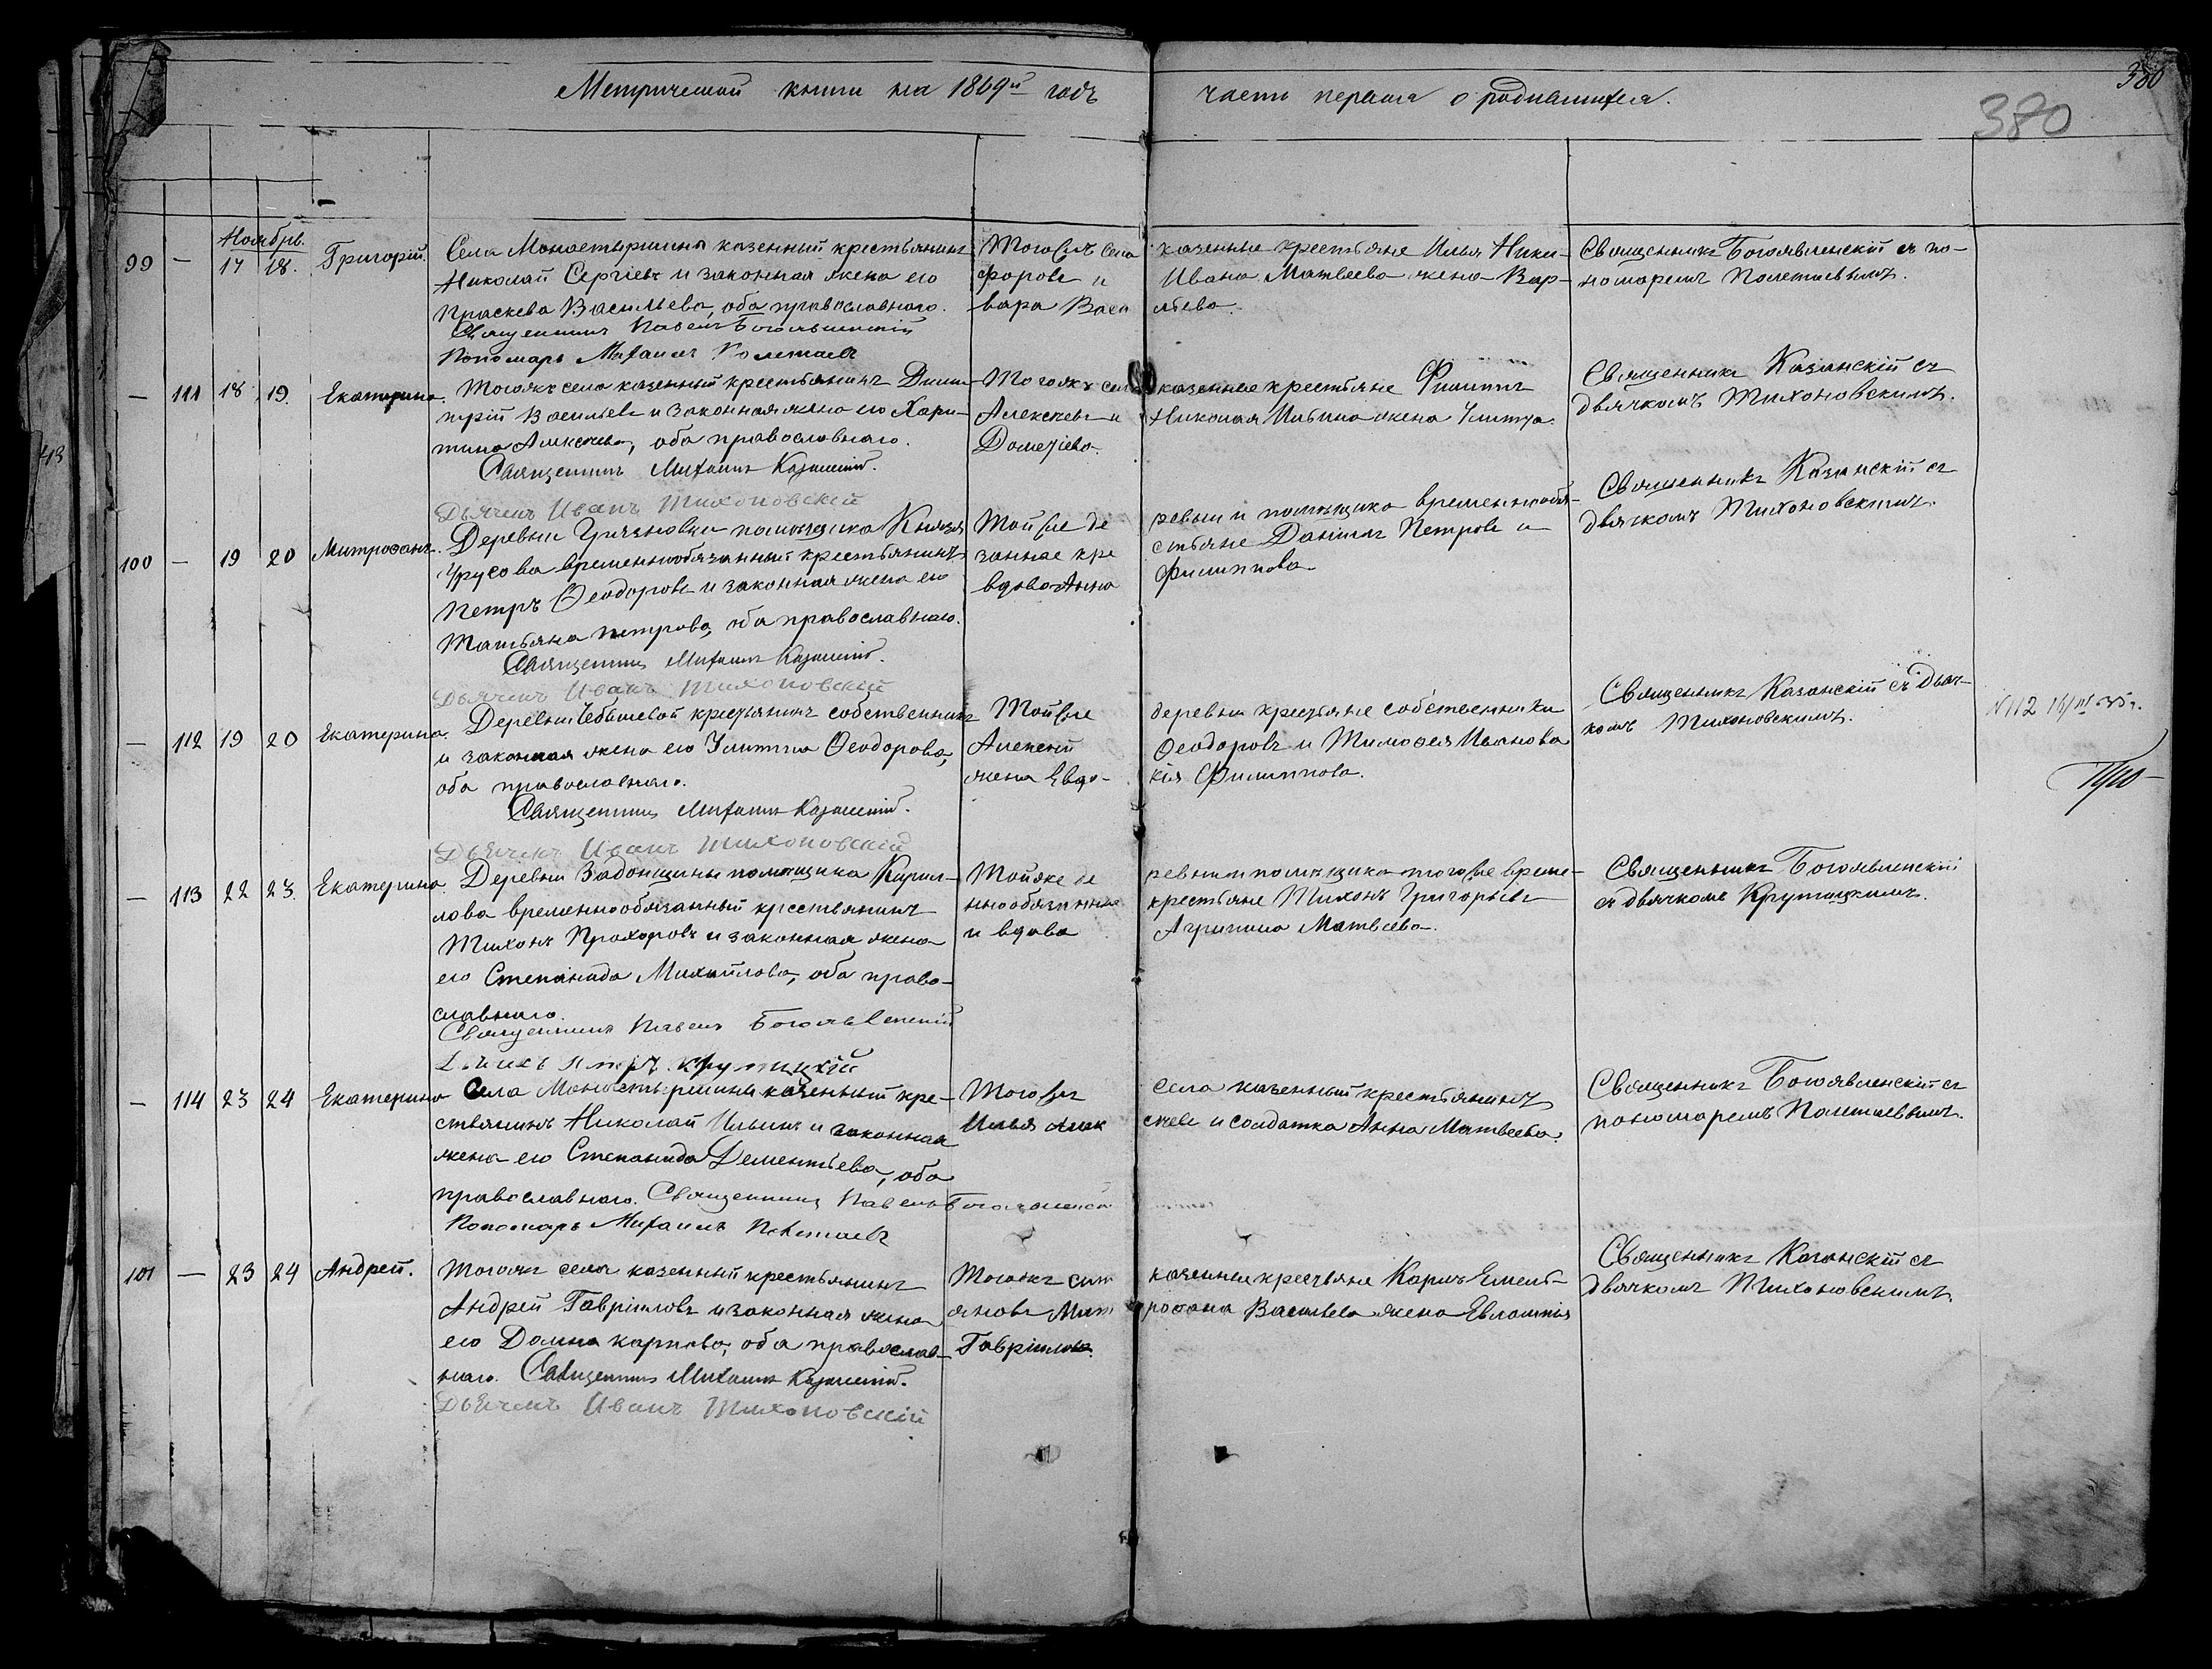 380
Метрической книги на 1869й годъ части первыя о родившихся.
380
Ноябрь.
99 — 17 18. Григорій. Села Монастыршины казенный крестьянинъ
Николай Сергіевъ и законная жена его
Праскева Васильева, оба православнаго.
Священникъ Павелъ Богоявленскій
Пономарь Михаилъ Полетаевъ
Тогоже села казенные крестьяне Илья Ники-
форовъ и Ивана Матвеева жена Вар-
вара Васильева.
Священникъ Богоявленскій съ по-
номаремъ Полетаевымъ.
— 111 18 19. Екатерина. Тогожъ села казенный крестьянинъ Дими-
трій Васильевъ и законная жена его Хари-
тина Алексеева, оба православнаго.
Священникъ Михаилъ Казанскій.
Дьячекъ Иванъ Тихоновскій
Тогожъ села казенные крестьяне Филиппъ
Алексеевъ и Николая Ильина жена Улита
Дометіева.
Священникъ Казанскій съ
дьячкомъ Тихоновскимъ.
100 — 19 20 Митрофанъ. Деревни Грязновки помѣщика Князя
Урусова временнообязанный крестьянинъ
Петръ Ѳеодоровъ и законная жена его
Татьяна Петрова, оба православнаго.
Священникъ Михаилъ Казанскій.
Дьячекъ Иванъ Тихоновскій
Тойже деревни и помѣщика временнообя-
занные крестьяне Даніилъ Петровъ и
вдова Анна Филиппова.
Священникъ Казанскій съ
дьячкомъ Тихоновскимъ.
— 112 19 20 Екатерина. Деревни Чебышевой крестьянинъ собственникъ
и законная жена его Улитта Ѳеодорова,
оба православнаго.
Священникъ Михаилъ Казанскій.
Дьячекъ Иванъ Тихоновскій
Тойже деревни крестьяне собственники
Алексей Ѳеодоровъ и Тимоѳея Иванова
жена Евдо-кія Филиппова.
Священникъ Казанскій съ дьяч-
комъ Тихоновскимъ.
N 112
— 113 22 23. Екатерина. Деревни Задонщины помѣщика Кирил-
лова временнообязанный крестьянинъ
Тихонъ Прохоровъ и законная жена
его Степанида Михайлова, оба право-
славнаго.
Священникъ Павелъ Богоявленскій
Дьячекъ Петръ Крутицкій
Тойже деревни и помѣщика тогоже време-
ннообязанные крестьяне Тихонъ Григорьевъ
и вдова Агрипина Матвеева.
Священникъ Богоявленскій
съ дьячкомъ Крутицкимъ.
— 114 23 24 Екатерина Села Монастыршины казенный кре-
стьянинъ Николай Ильинъ и законная
жена его Степанида Дементьева, оба
православнаго. Священникъ Павелъ Богоявленскій
Пономарь Михаилъ Полетаевъ
Тогоже села казенный крестьянинъ
Илья Алексеевъ и солдатка Анна Матвеева.
Священникъ Богоявленскій съ
пономаремъ Полетаевымъ.
101 — 23 24 Андрей. Тогожъ села казенный крестьянинъ
Андрей Гавріиловъ и законная жена
его Домна Карпова, оба православ-
наго. Священникъ Михаилъ Казанскій.
Дьячекъ Иванъ Тихоновскій
Тогожъ села казенные крестьяне Карпъ Емель-
яновъ Митрофана Васильева жена Евлампія
Гавріилова.
Священникъ Казанскій съ
дьячкомъ Тихоновскимъ.